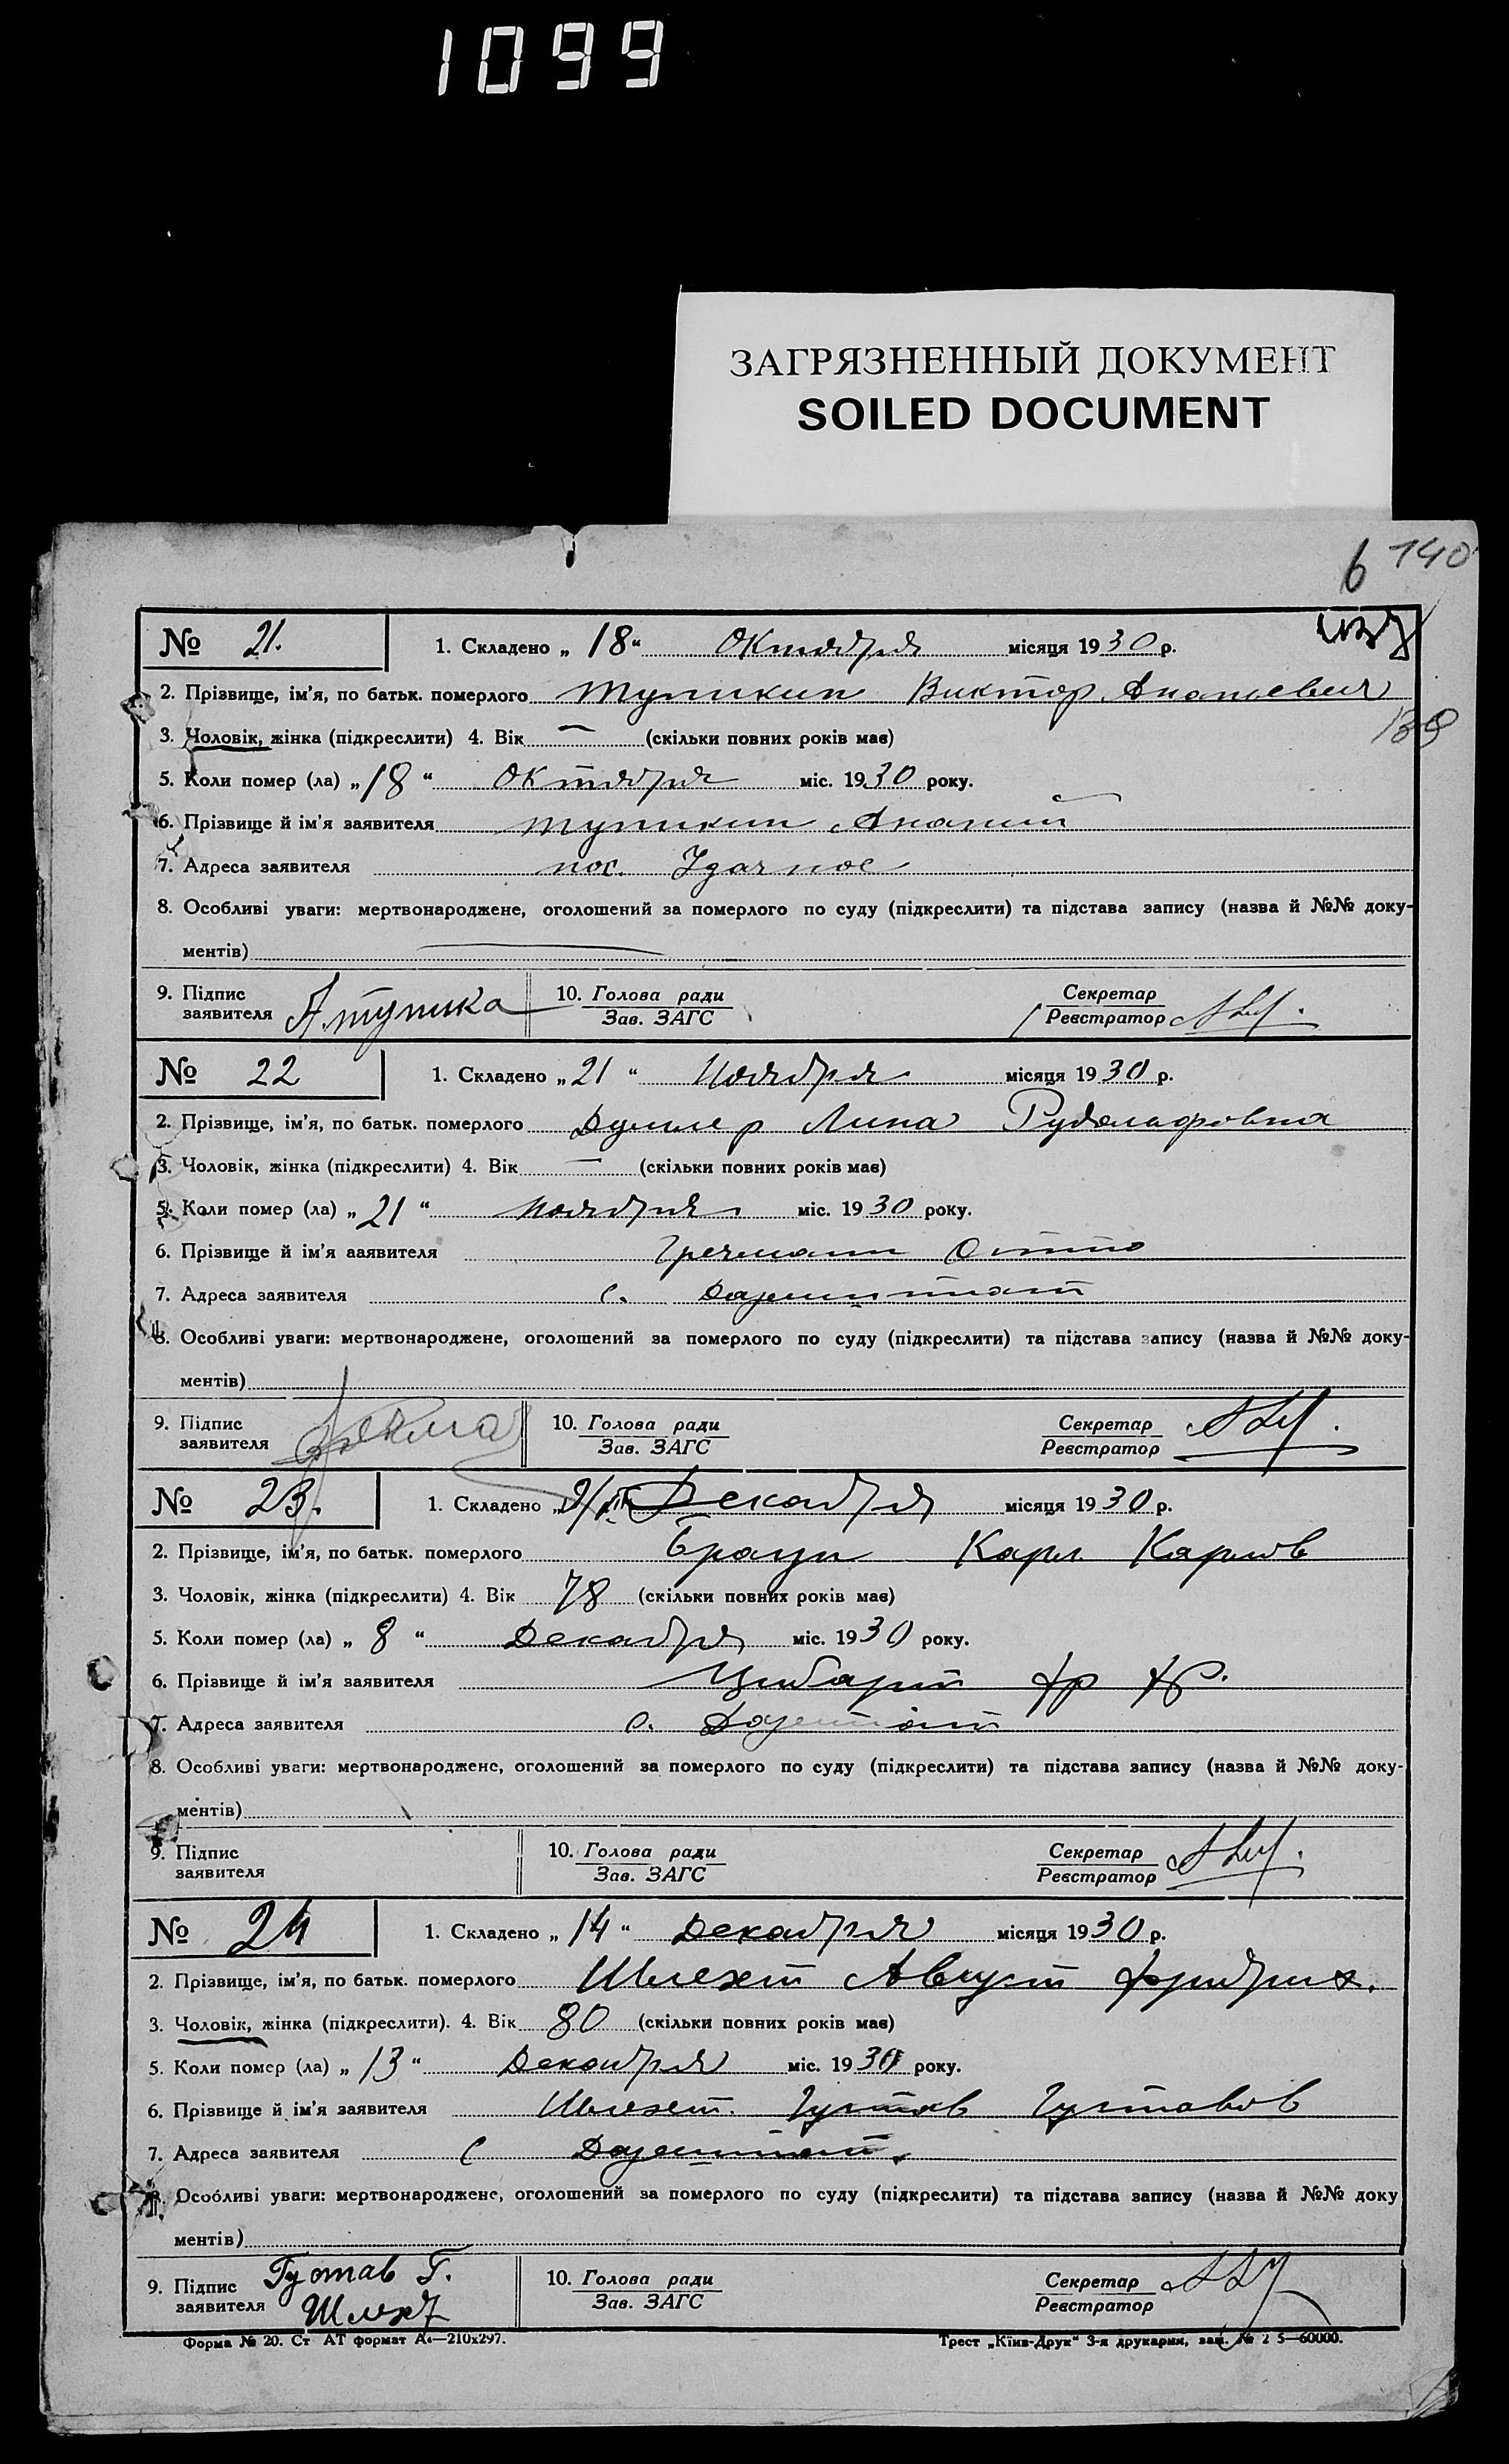 1099
ЗАГРЯЗНЕННЫЙ ДОКУМЕНТ
SOILED DOCUMENT
6 140
№ 21. 1. Складено „ 18 “ Октября місяця 1930 р.
2. Прізвище, ім'я, по батьк. померлого Тупикин Виктор Ананьевич
139
3. Чоловік, жінка (підкреслити) 4. Вік — (скільки повних років має)
5. Коли помер (ла) „ 18 “ Октября міс. 1930 року.
6. Прізвище й ім'я заявителя Тупикин Ананий
7. Адреса заявителя пос. Удачное
8. Особливі уваги: мертвонароджене, оголошений за померлого по суду (підкреслити) та підстава запису (назва й №№ доку-
ментів)
9. Підпис заявителя А. Тупика 10. Голова ради Зав. ЗАГС Секретар Реєстратор
№ 22 1. Складено „ 21 “ Ноября місяця 1930 р.
2. Прізвище, ім'я, по батьк. померлого Лина Рудольфовна
3. Чоловік, жінка (підкреслити) 4. Вік — (скільки повних років має)
5. Коли помер (ла) „ 21 “ Ноября міс. 1930 року.
6. Прізвище й ім'я заявителя Гречманн Отто
7. Адреса заявителя с.
8. Особливі уваги: мертвонароджене, оголошений за померлого по суду (підкреслити) та підстава запису (назва й №№ доку-
ментів)
9. Підпис заявителя 10. Голова ради Зав. ЗАГС Секретар Реєстратор
№ 23. 1. Складено „ Декабря місяця 1930 р.
2. Прізвище, ім'я, по батьк. померлого Браун Карл Карлов
3. Чоловік, жінка (підкреслити) 4. Вік 78 (скільки повних років має)
5. Коли помер (ла) „ 8 “ Декабря міс. 1930 року.
6. Прізвище й ім'я заявителя Цибарт Фр Фр.
7. Адреса заявителя с.
8. Особливі уваги: мертвонароджене, оголошений за померлого по суду (підкреслити) та підстава запису (назва й №№ доку-
ментів)
9. Підпис заявителя 10. Голова ради Зав. ЗАГС Секретар Реєстратор
№ 24 1. Складено „ 14 “ Декабря місяця 1930 р.
2. Прізвище, ім'я, по батьк. померлого Шлехт Август Фридрих.
3. Чоловік, жінка (підкреслити). 4. Вік 80 (скільки повних років має)
5. Коли помер (ла) „ 13 “ Декабря міс. 1930 року.
6. Прізвище й ім'я заявителя Шлехт. Густав Густавов
7. Адреса заявителя с
8. Особливі уваги: мертвонароджене, оголошений за померлого по суду (підкреслити) та підстава запису (назва й №№ доку
ментів)
9. Підпис заявителя Густав Г. Шлехт 10. Голова ради Зав. ЗАГС Секретар Реєстратор
Форма № 20. Ст АТ формат А4—210x297. Трест „Київ-Друк“ 3-я друкарня, зам. № 2 5—60000.